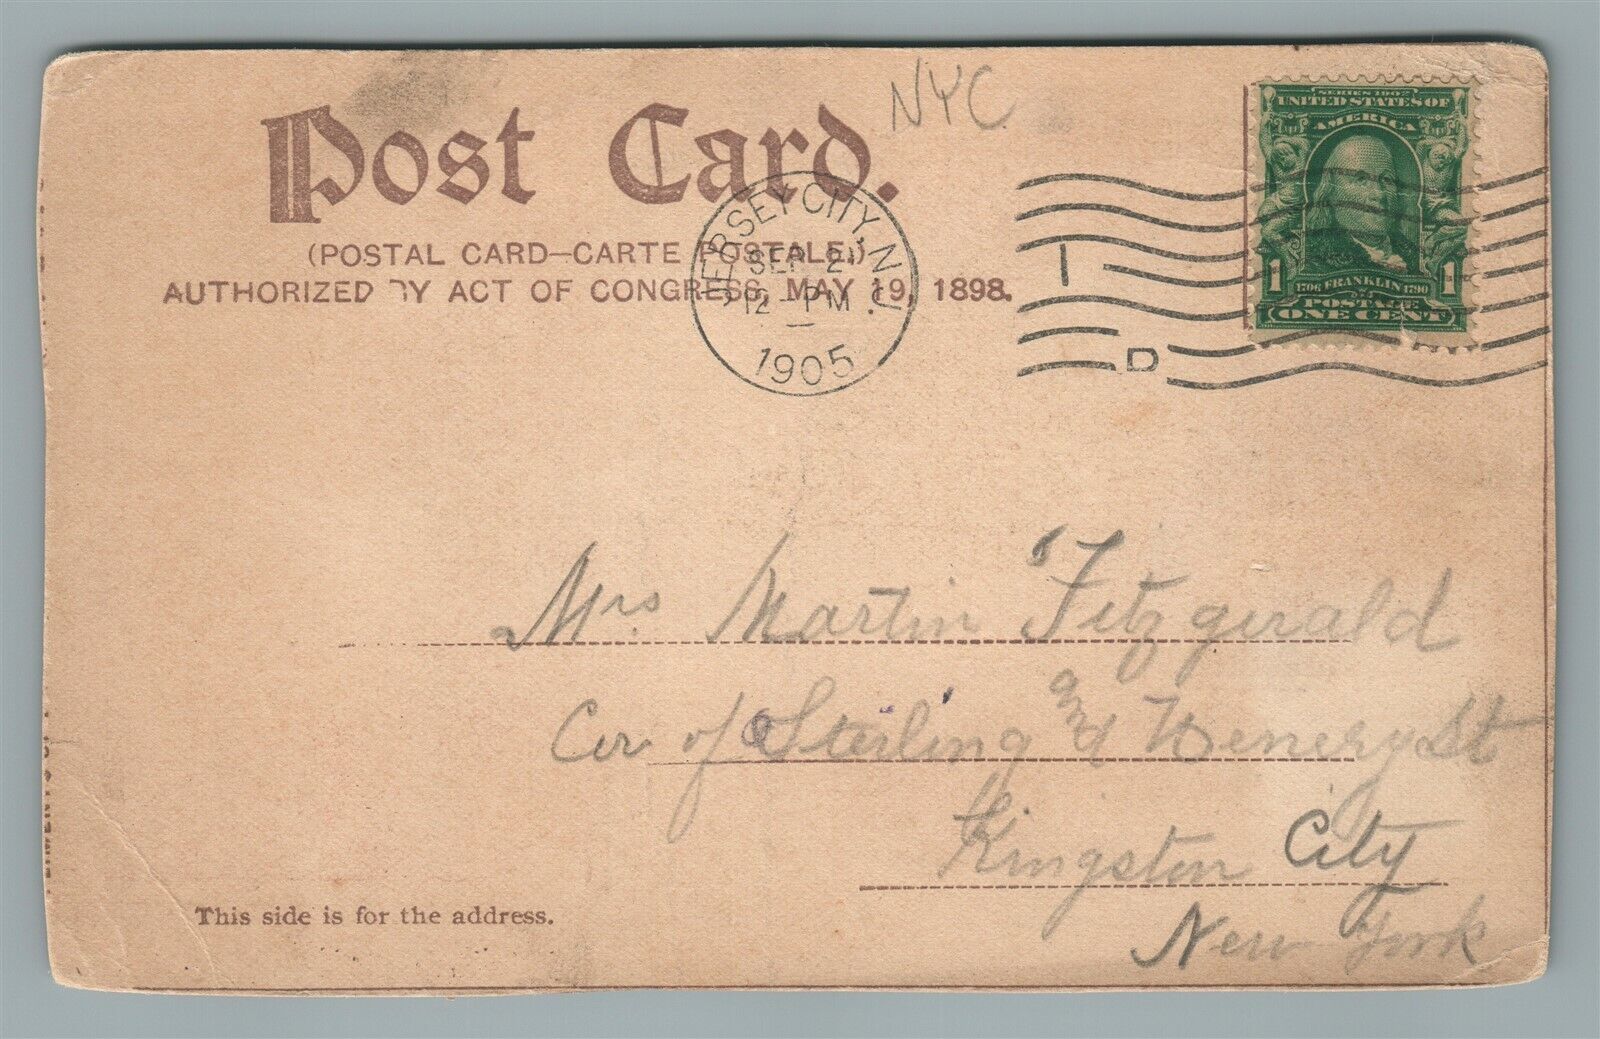 Post Card.
NYC
(POSTAL CARD—CARTE POSTALE.)
AUTHORIZED BY ACT OF CONGRESS, MAY 19, 1898.
JERSEY CITY, N.J.
SEP 2
12 - PM
1905
I
D
SERIES 1902
UNITED STATES OF
AMERICA
1706 FRANKLIN 1790
1 1
POSTAGE
ONE CENT
Mrs Martin Fitzgerald
Cor of Sterling and St
Kingston City
New York
This side is for the address.